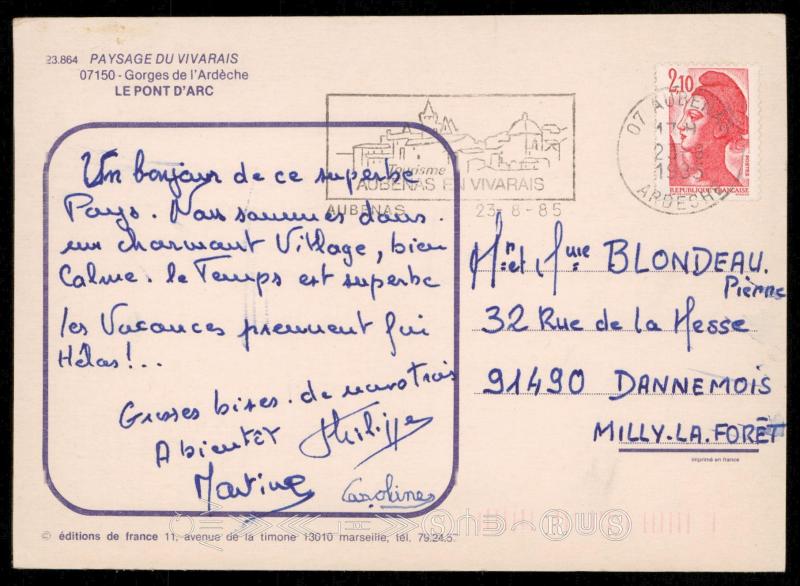 23.864 PAYSAGE DU VIVARAIS
07150 - Gorges de l'Ardèche
LE PONT D'ARC
Tourisme
AUBENAS EN VIVARAIS
AUBENAS 23-8-85
07 AUBENAS
17 H
1985
ARDECHE
2,10
POSTES
REPUBLIQUE FRANÇAISE
Un bonjour de ce superbe
Pays. Nous sommes dans
un charmant Village, bien
Calme. le Temps est superbe
les Vacances prennent fin
Hélas!...
Grosses bises de nous trois
A bientôt Philippe
Martine Caroline
Mr et Mme BLONDEAU.
Pierre
32 Rue de la Messe
91490 DANNEMOIS
MILLY-LA-FORÊT
imprimé en france
© éditions de france 11, avenue de la timone 13010 marseille, tél. 79.24.5